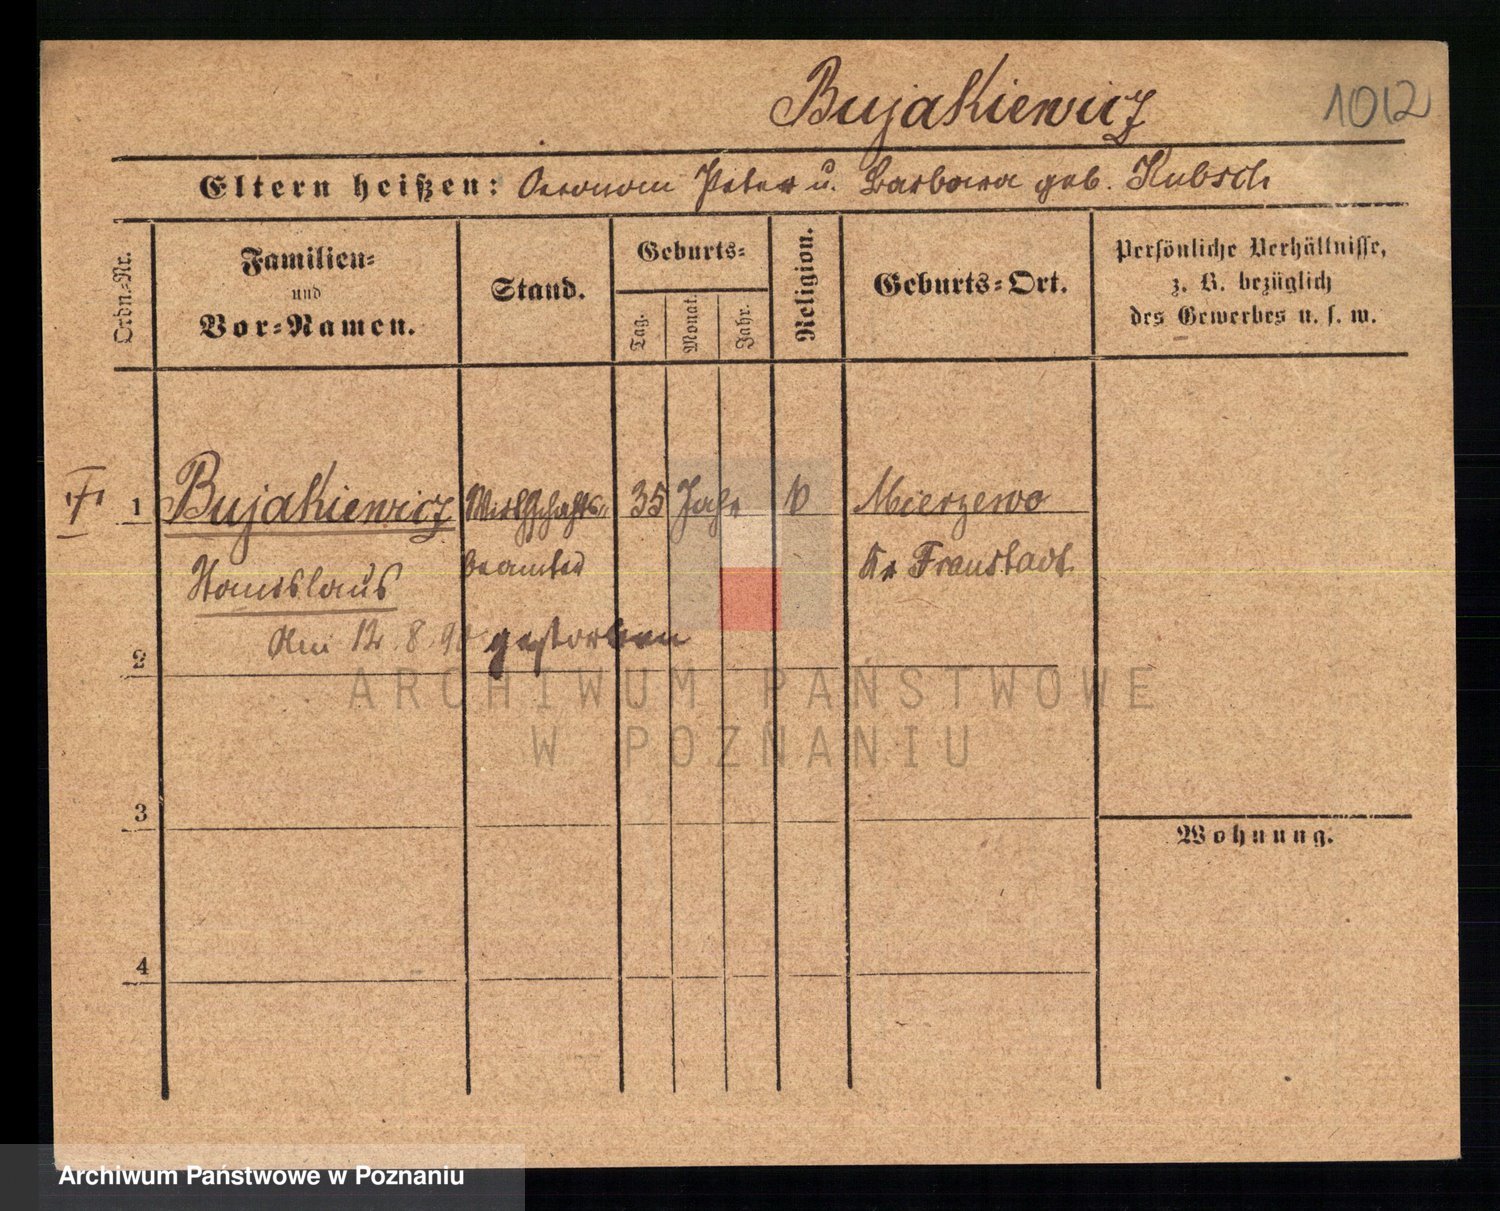 Bujakiewicz 1012
Eltern heißen: Oeconom Peter u. Barbara geb. Kubsch
Ordn.-Nr.
Familien-
und
Vor-Namen.
Stand.
Geburts-
Tag.
Monat.
Jahr.
Religion.
Geburts-Ort.
Persönliche Verhältnisse,
z. B. bezüglich
des Gewerbes u. s. w.
1 Bujakiewicz Wirthschafts- 35 Jahr Mierzewo
Stanislaus beamter Kr Fraustadt
Am 12. 8. gestorben
2
3
Wohnung.
4
ARCHIWUM PAŃSTWOWE
W POZNANIU
Archiwum Państwowe w Poznaniu